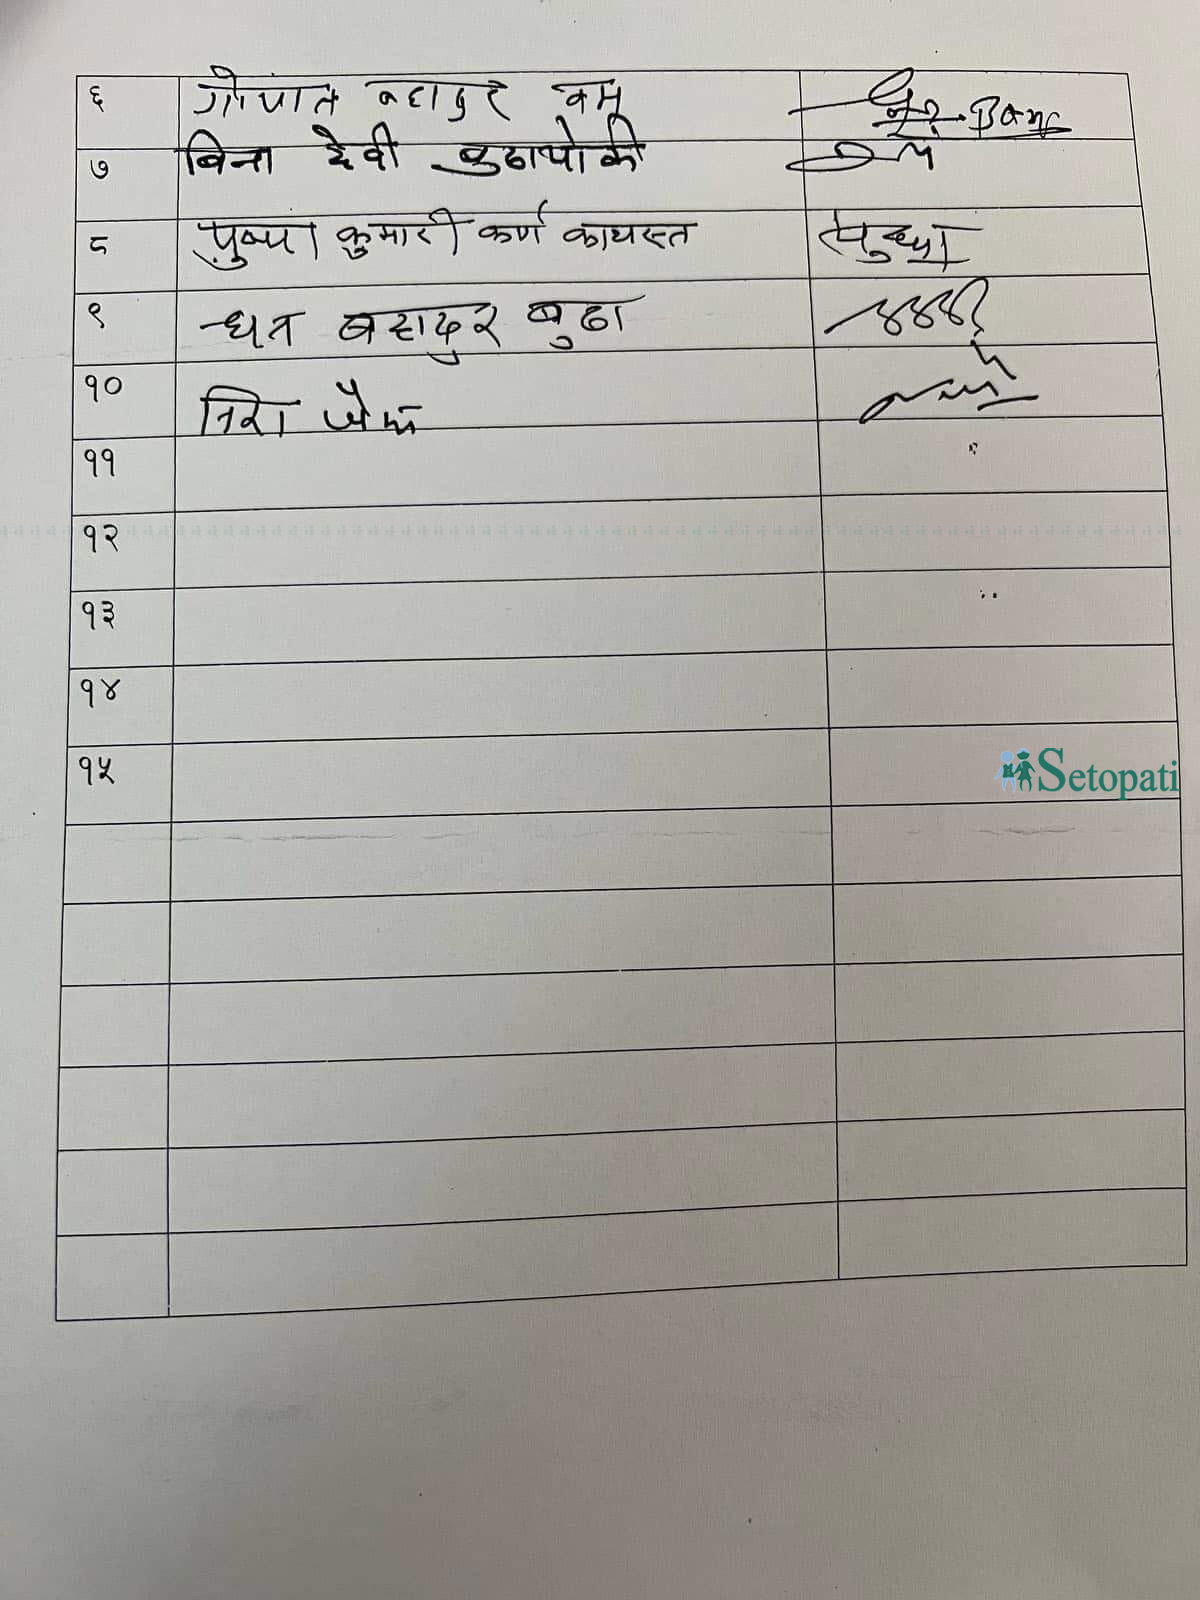 ६ गोपाल बहादुर बम Bam
७ बिना देवी बुढाथोकी
८ पुष्पा कुमारी कर्ण कायस्त पुष्पा
९ छत्र बहादुर बुढा
१०
११
१२
१३
१४
१५
Setopati